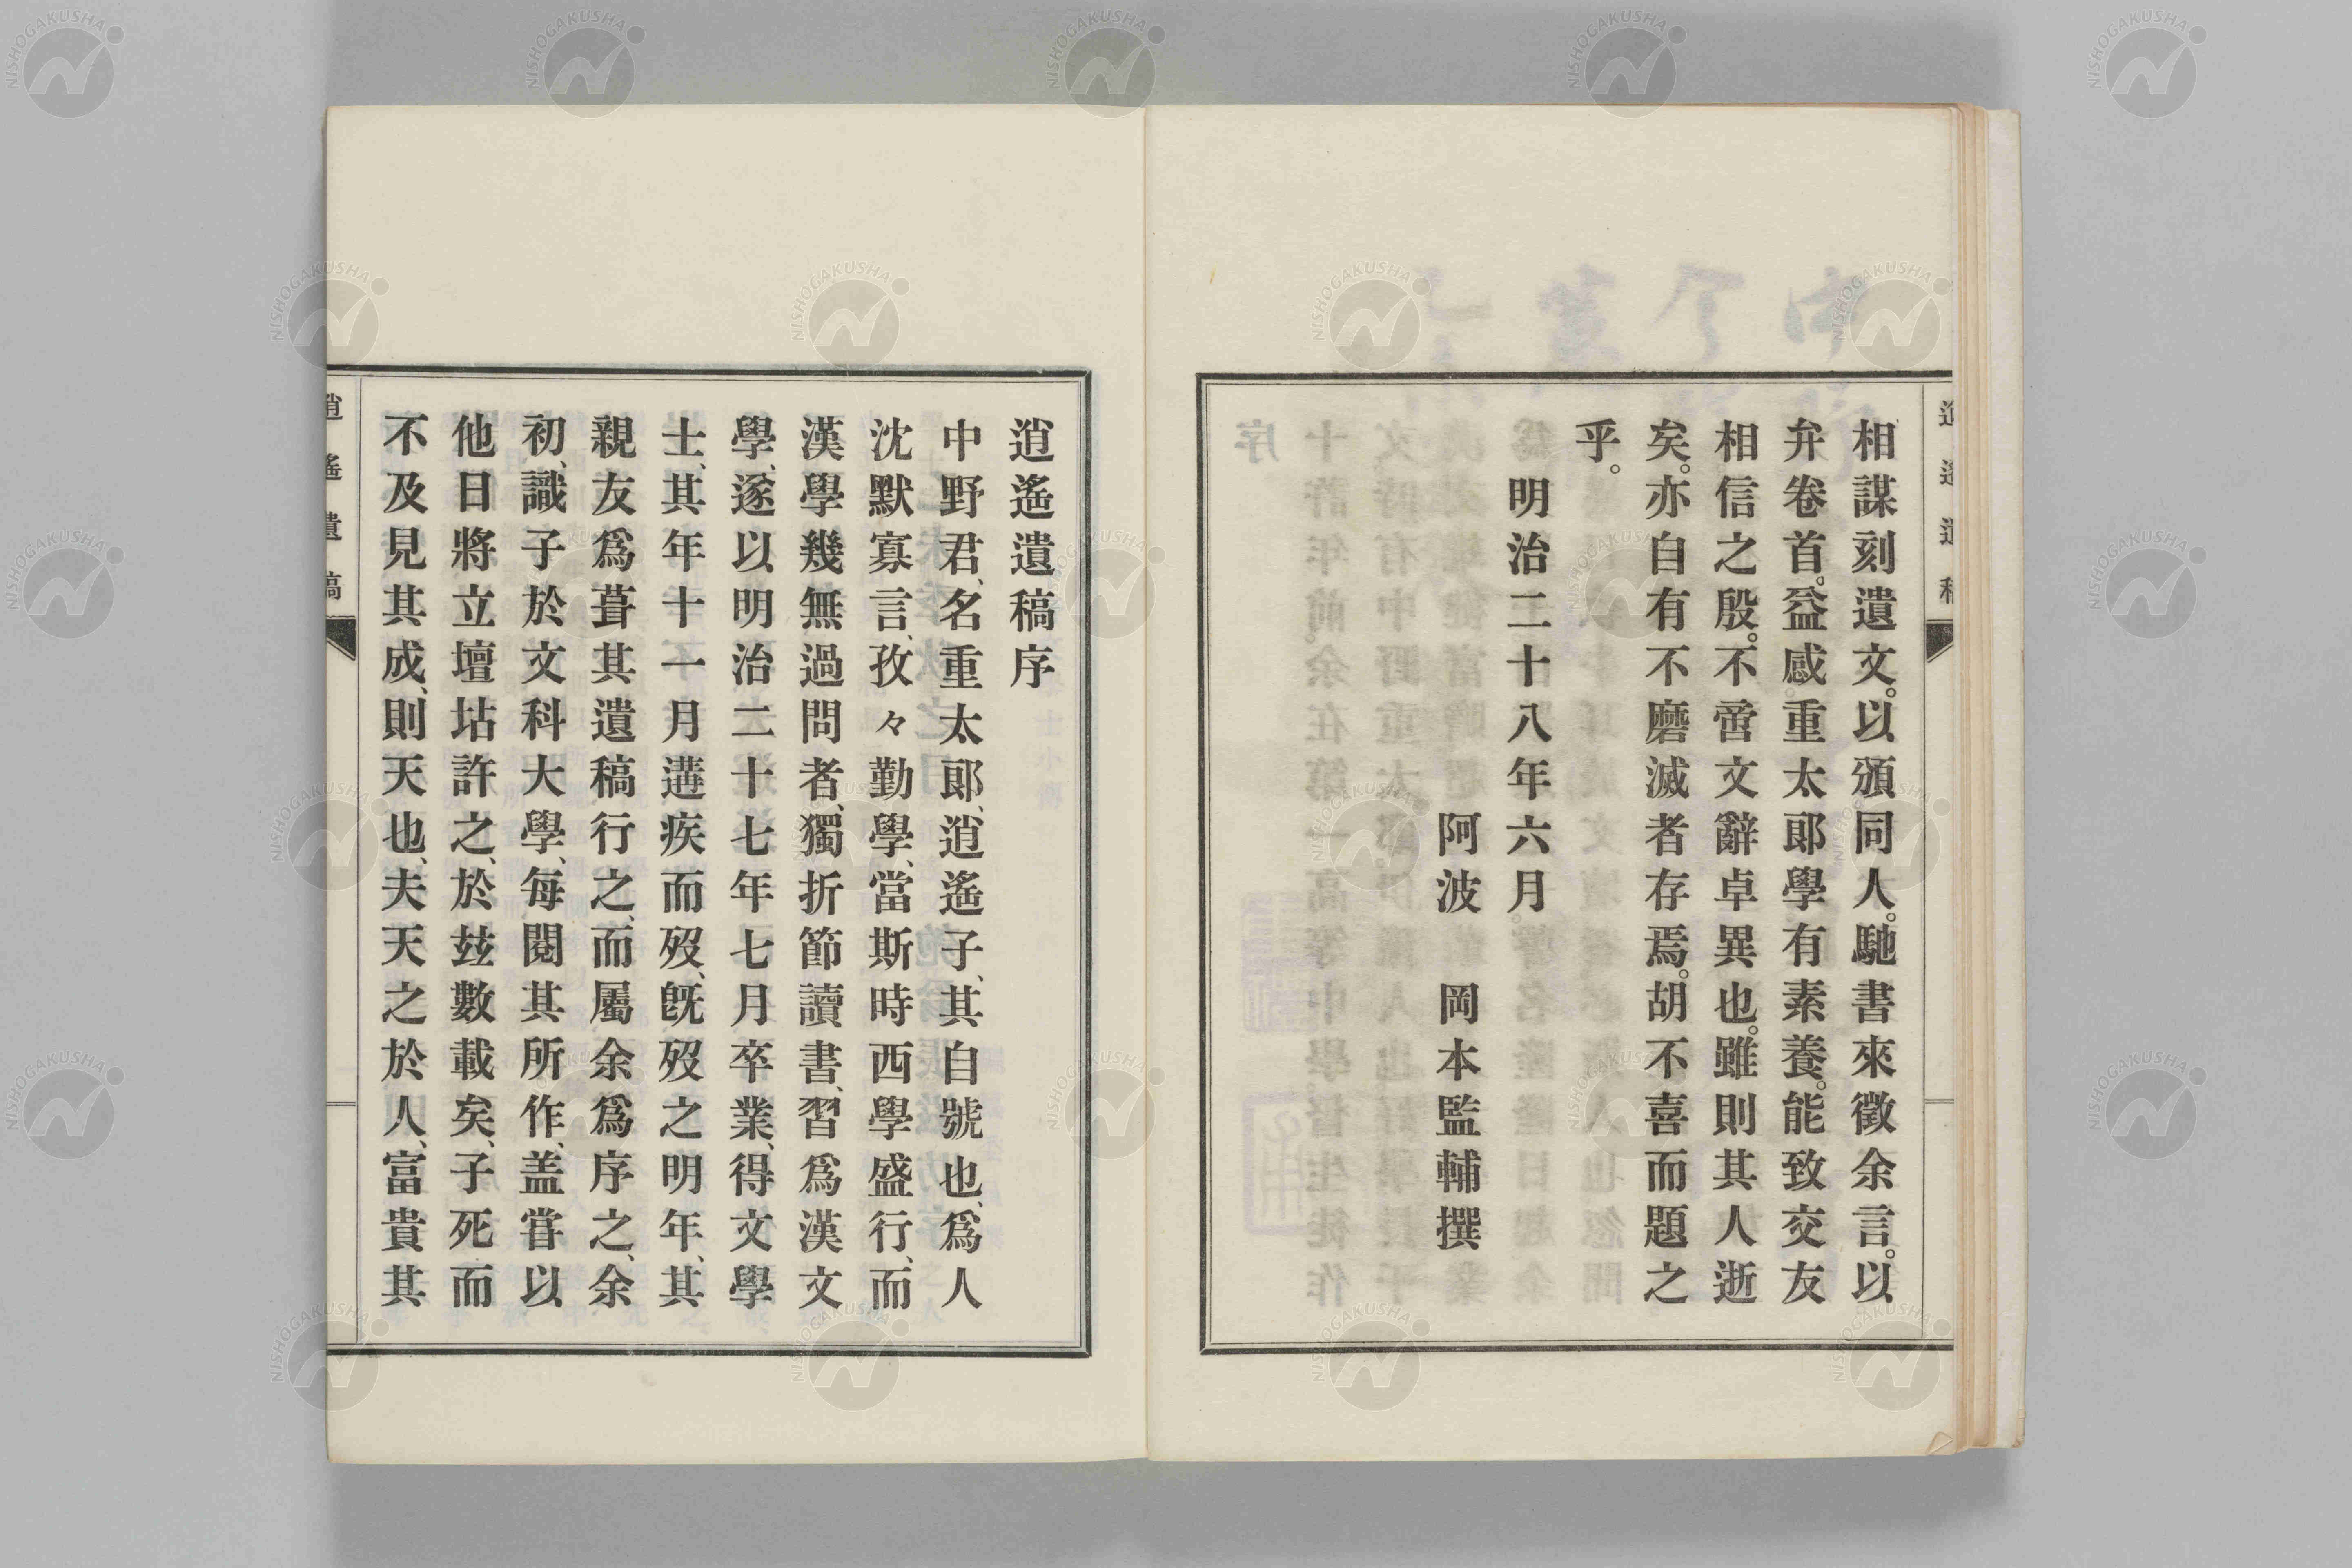 相謀刻遺文。以頒同人。馳書來徵余言。以
弁卷首。益感重太郎學有素養。能致交友
相信之殷。不啻文辭卓異也。雖則其人逝
矣。亦自有不磨滅者存焉。胡不喜而題之
乎。
明治二十八年六月
阿波 岡本監輔撰
逍遙遺稿序
中野君、名重太郎、逍遙子、其自號也、爲人
沈默寡言、孜々勤學、當斯時西學盛行、而
漢學幾無過問者、獨折節讀書、習爲漢文
學、遂以明治二十七年七月卒業、得文學
士、其年十一月遘疾而歿、旣歿之明年、其
親友爲葺其遺稿行之、而屬余爲序之、余
初識子於文科大學、每閱其所作、盖嘗以
他日將立壇坫許之、於玆數載矣、子死而
不及見其成、則天也、夫天之於人、富貴其
逍遙遺稿
NISHOGAKUSHA